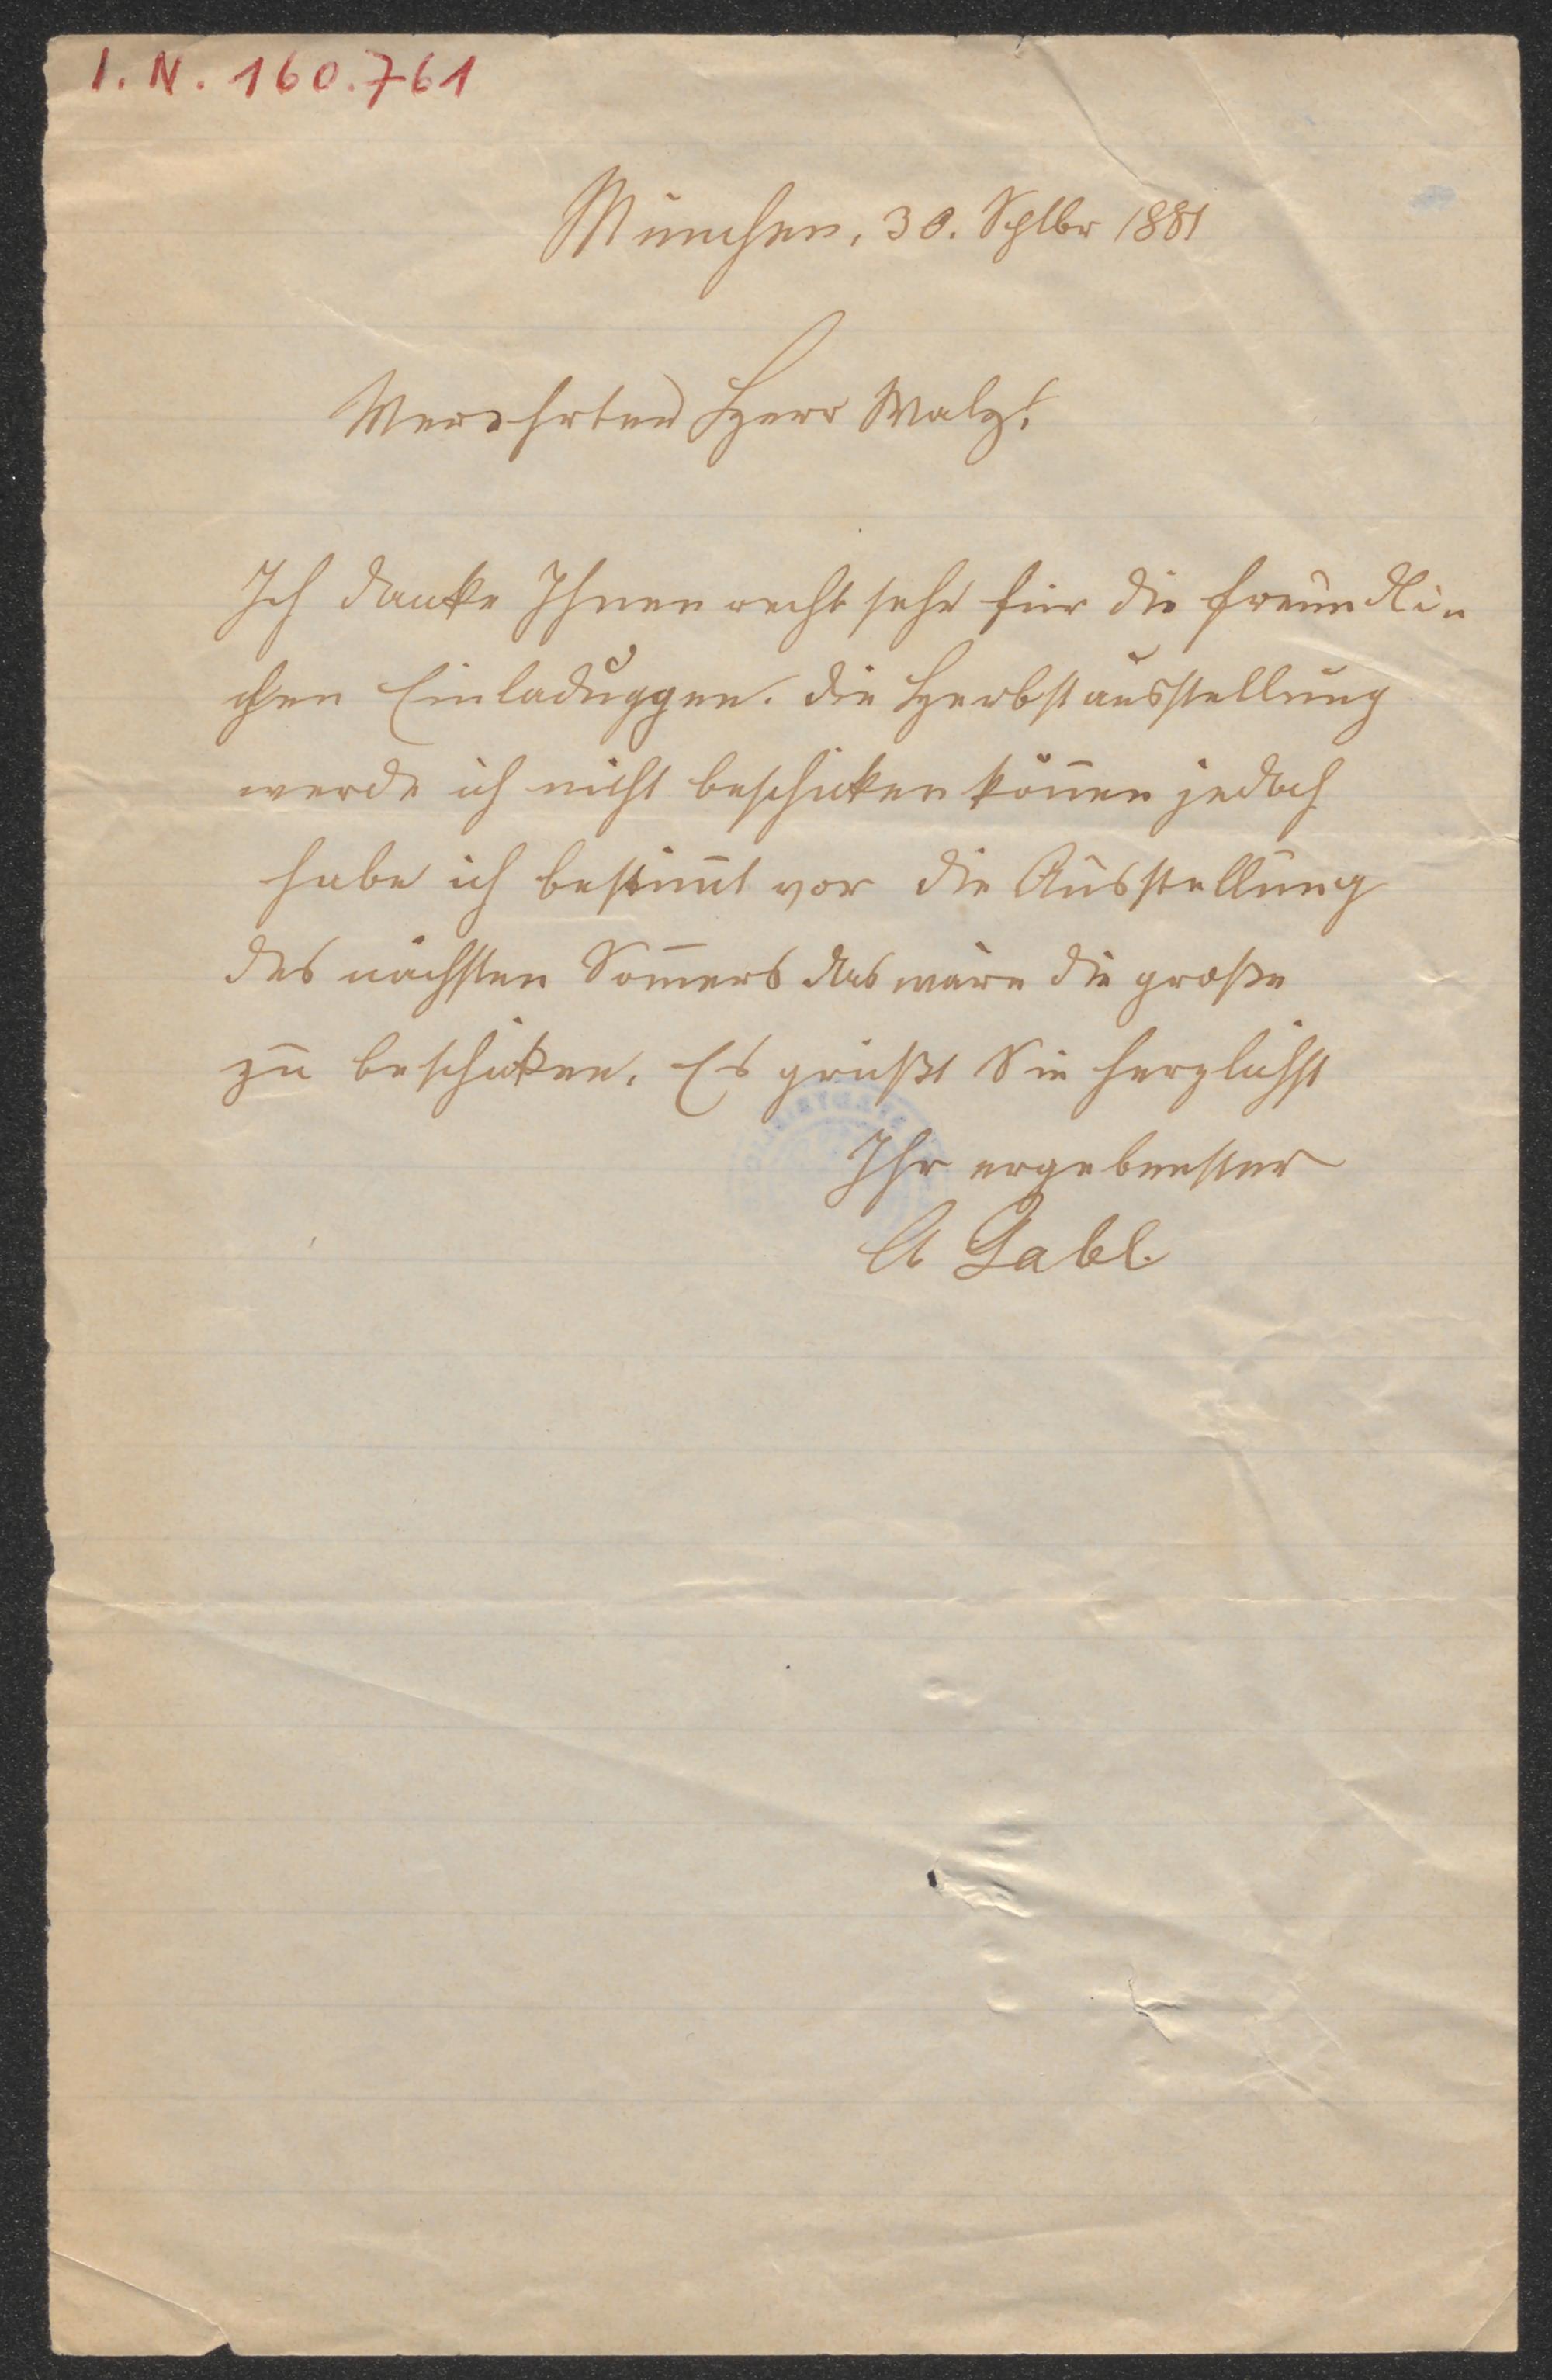 I. N. 160.761
München, 30. Sptbr 1881
Verehrter Herr Walz!
Ich danke Ihnen recht sehr für die freundli-
chen Einladuggen. die Herbstausstellung
werde ich nicht beschicken kön̄en jedoch
habe ich bestim̄t vor die Ausstellung
des nächsten Som̄ers das wäre die große
zu beschicken. Es grüßt Sie herzlichst
Ihr ergebenster
A Gabl.